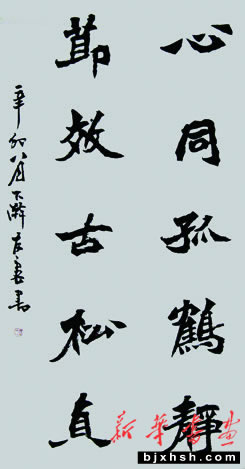 心同孤鶴靜
節效古松貞
辛卯八月下澣
新華書畫
bjxhsh.com